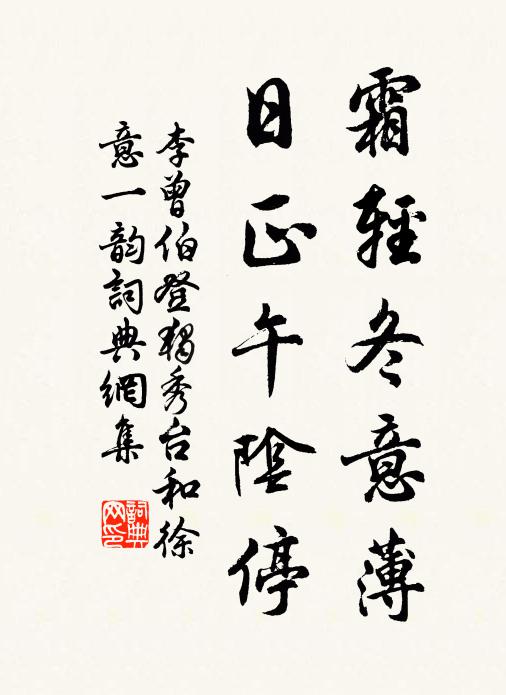 霜輕冬意薄
日正午陰停
李曾伯登獨秀台和徐
意一韵詞典網集
詞典网印